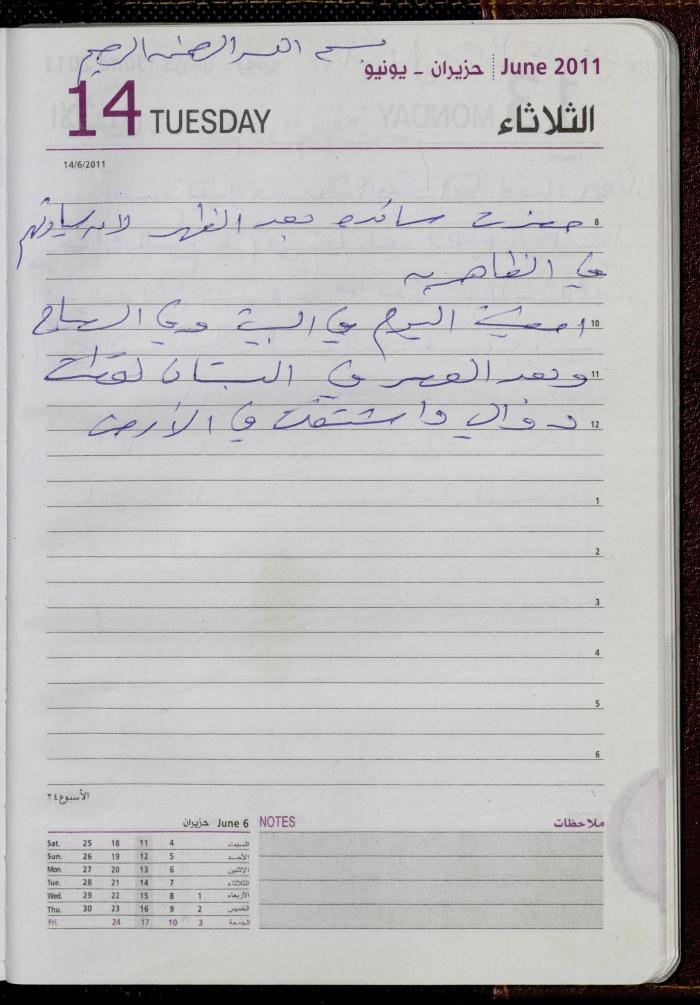 بسم الله الرحمن الرحيم
June 2011 حزيران - يونيو
14 TUESDAY الثلاثاء
14/6/2011
8 حضرت سائده بعد الظهر لان
في الظاهريه
10 امضيت اليوم في البيت وفي
11 وبعد العصر في البستان لقطت
12 دوالي واشتغلت في الأرض
1
2
3
4
5
6
الأسبوع ٢٤
June 6 حزيران
Sat. 25 18 11 4 السبت
Sun. 26 19 12 5 الأحد
Mon. 27 20 13 6 الإثنين
Tue. 28 21 14 7 الثلاثاء
Wed. 29 22 15 8 1 الأربعاء
Thu. 30 23 16 9 2 الخميس
Fri. 24 17 10 3 الجمعة
NOTES ملاحظات